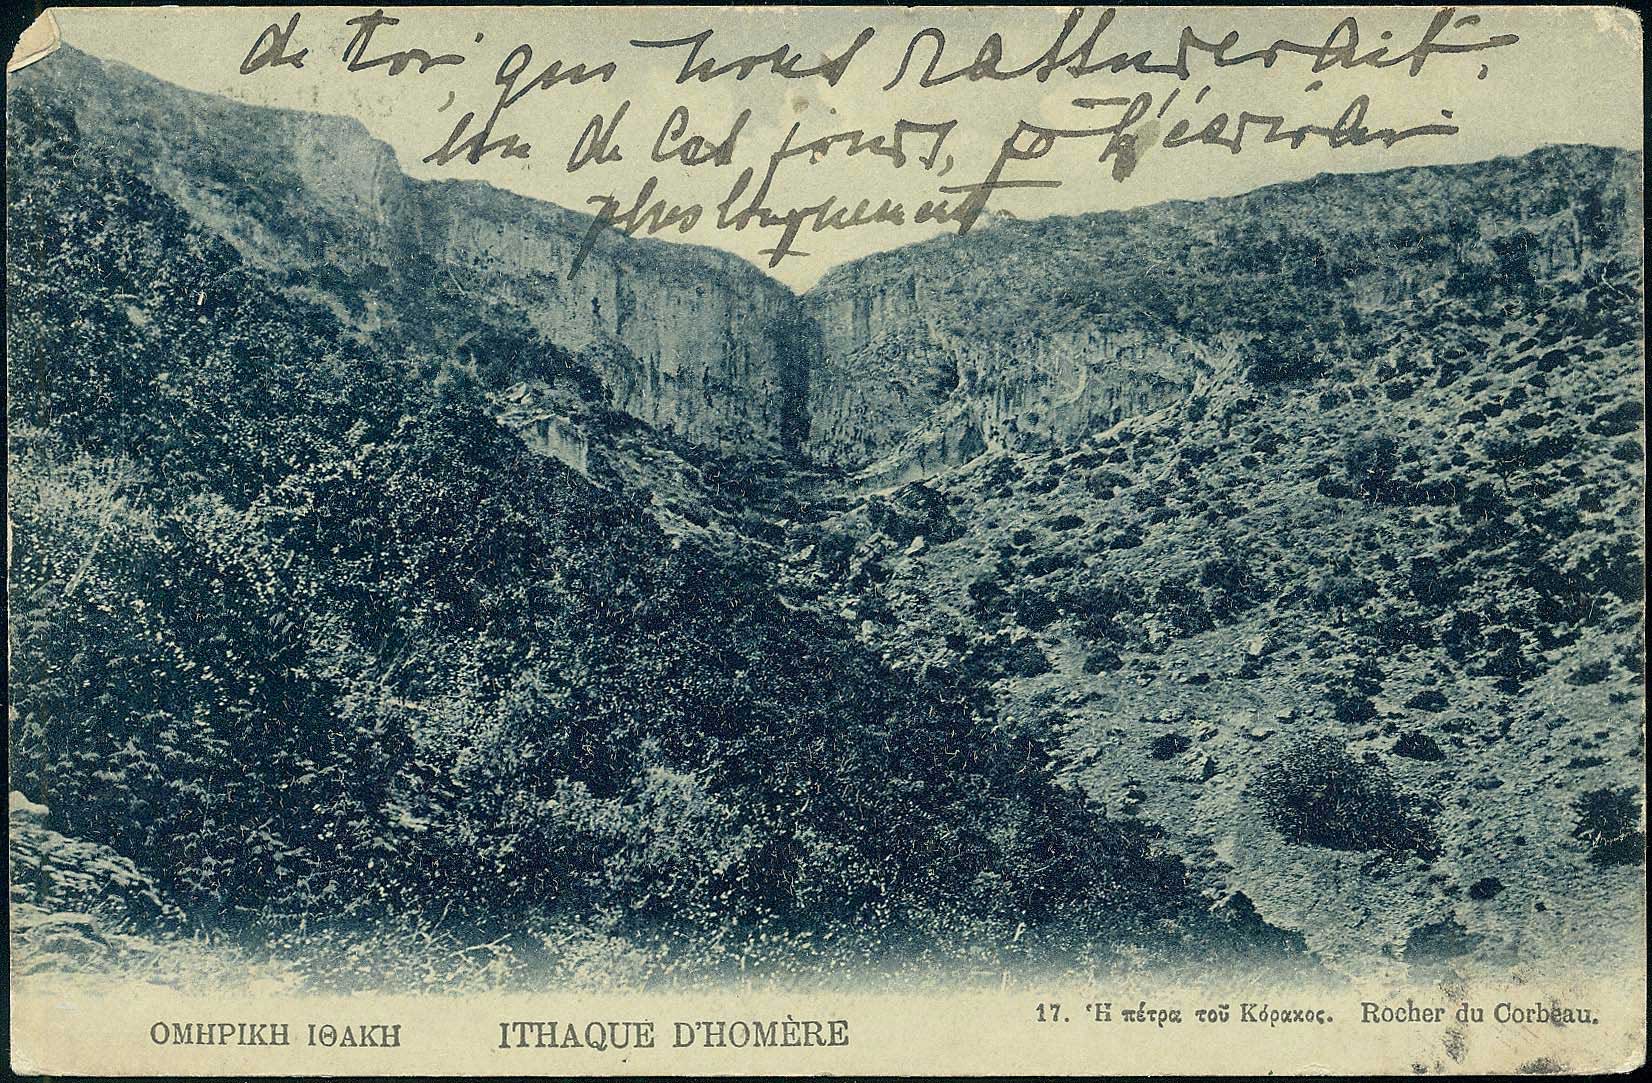 de toi, qui nous rassurerait,
un de ces jours, je t'écrirai
plus longuement
17. Ἡ πέτρα τοῦ Κόρακος. Rocher du Corbeau.
ΟΜΗΡΙΚΗ ΙΘΑΚΗ ITHAQUE D'HOMÈRE